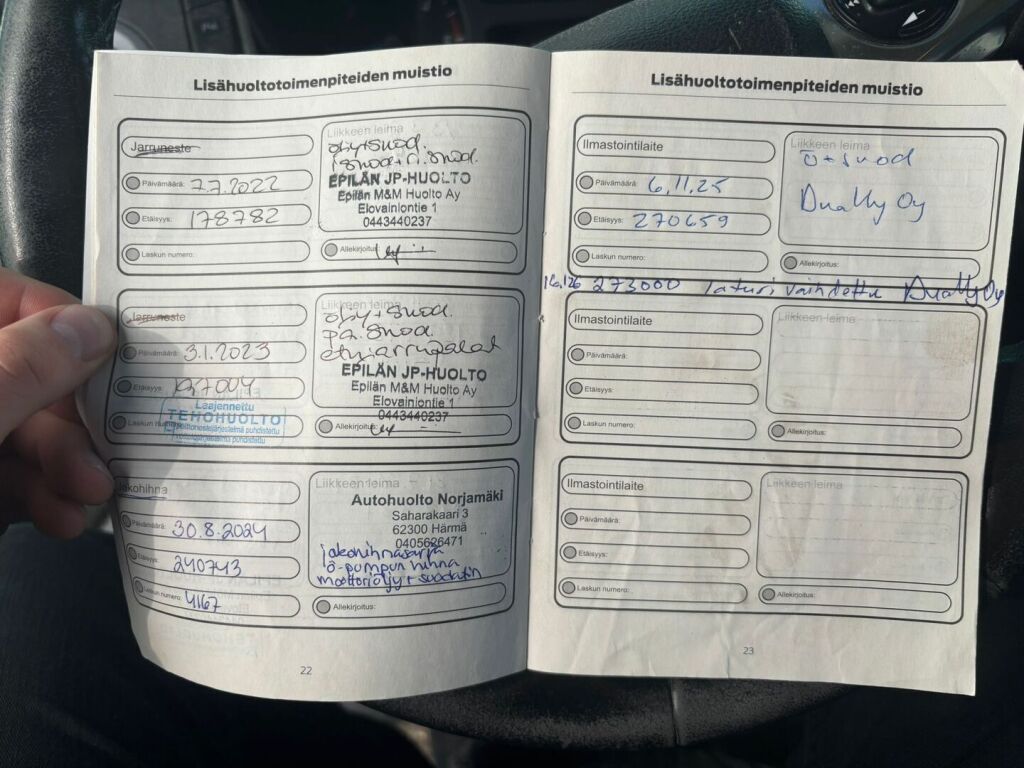 Lisähuoltotoimenpiteiden muistio
Jarruneste
Päivämäärä: 7.7.2022
Etäisyys: 178782
Laskun numero:
Liikkeen leima
öljy+suod.
i.suod+r.suod.
EPILÄN JP-HUOLTO
Epilän M&M Huolto Ay
Elovainiontie 1
0443440237
Allekirjoitus:
Jarruneste
Päivämäärä: 3.1.2023
Etäisyys:
Laskun numero:
Laajennettu
TEHOHUOLTO
Liikkeen leima
öljy+suod.
pa.suod.
etujarrupalat
EPILÄN JP-HUOLTO
Epilän M&M Huolto Ay
Elovainiontie 1
0443440237
Allekirjoitus:
Jakohihna
Päivämäärä: 30.8.2024
Etäisyys: 240743
Laskun numero: 4167
Liikkeen leima
Autohuolto Norjamäki
Saharakaari 3
62300 Härmä
0405626471
jakohihnasarja
ö-pumpun hihna
moottoriöljy+suodatin
Allekirjoitus:
22
Lisähuoltotoimenpiteiden muistio
Ilmastointilaite
Päivämäärä: 6.11.25
Etäisyys: 270659
Laskun numero:
Liikkeen leima
ö+suod
Dually Oy
Allekirjoitus:
273000 laturi vaihdettu Dually Oy
Ilmastointilaite
Päivämäärä:
Etäisyys:
Laskun numero:
Liikkeen leima
Allekirjoitus:
Ilmastointilaite
Päivämäärä:
Etäisyys:
Laskun numero:
Liikkeen leima
Allekirjoitus:
23